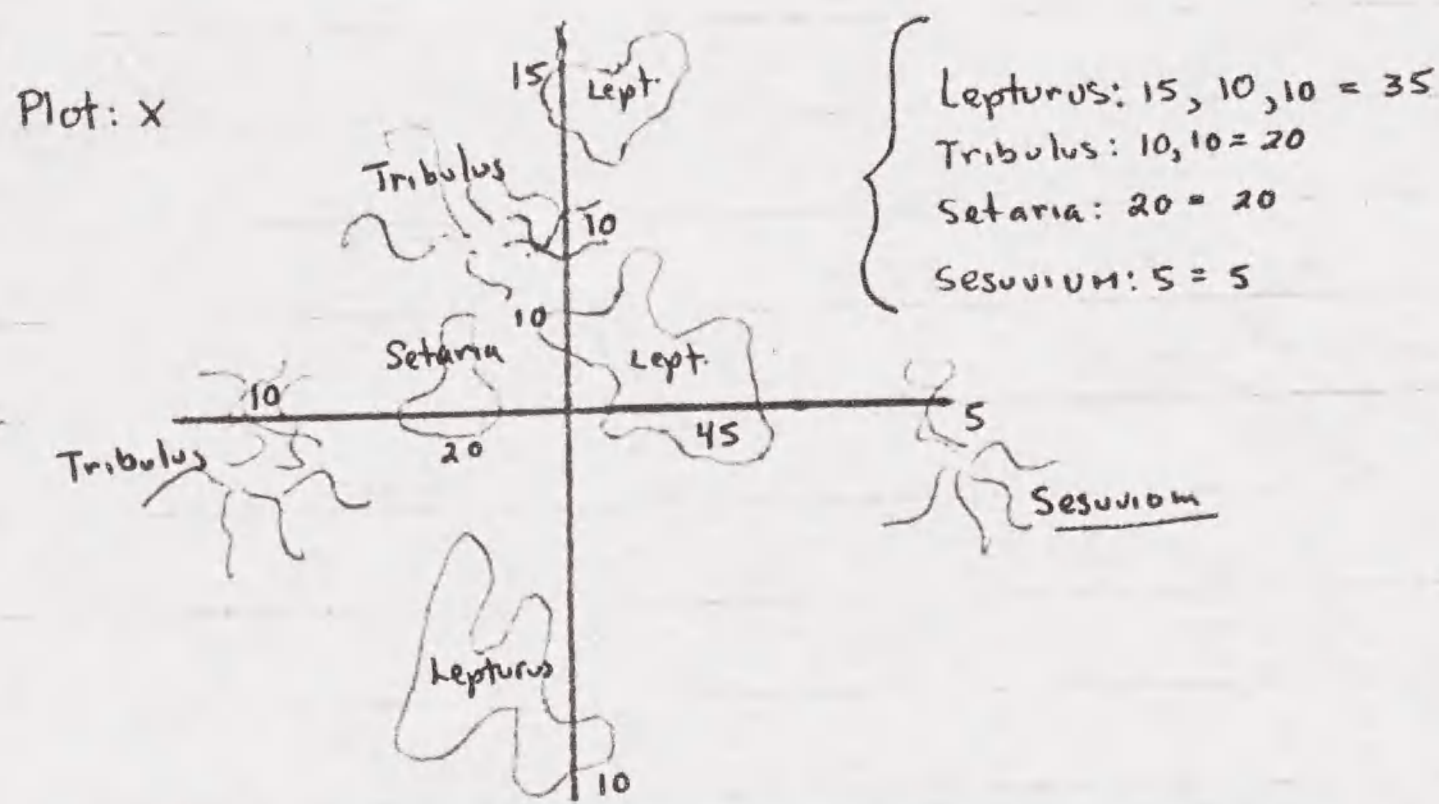 Plot: X
15 Lept.
Tribulus
10
10
Setaria
Lept.
10
5
20
45
Tribulus
Sesuviom
Lepturus
10
Lepturus: 15, 10, 10 = 35
Tribulus: 10, 10 = 20
Setaria: 20 = 20
Sesuvium: 5 = 5